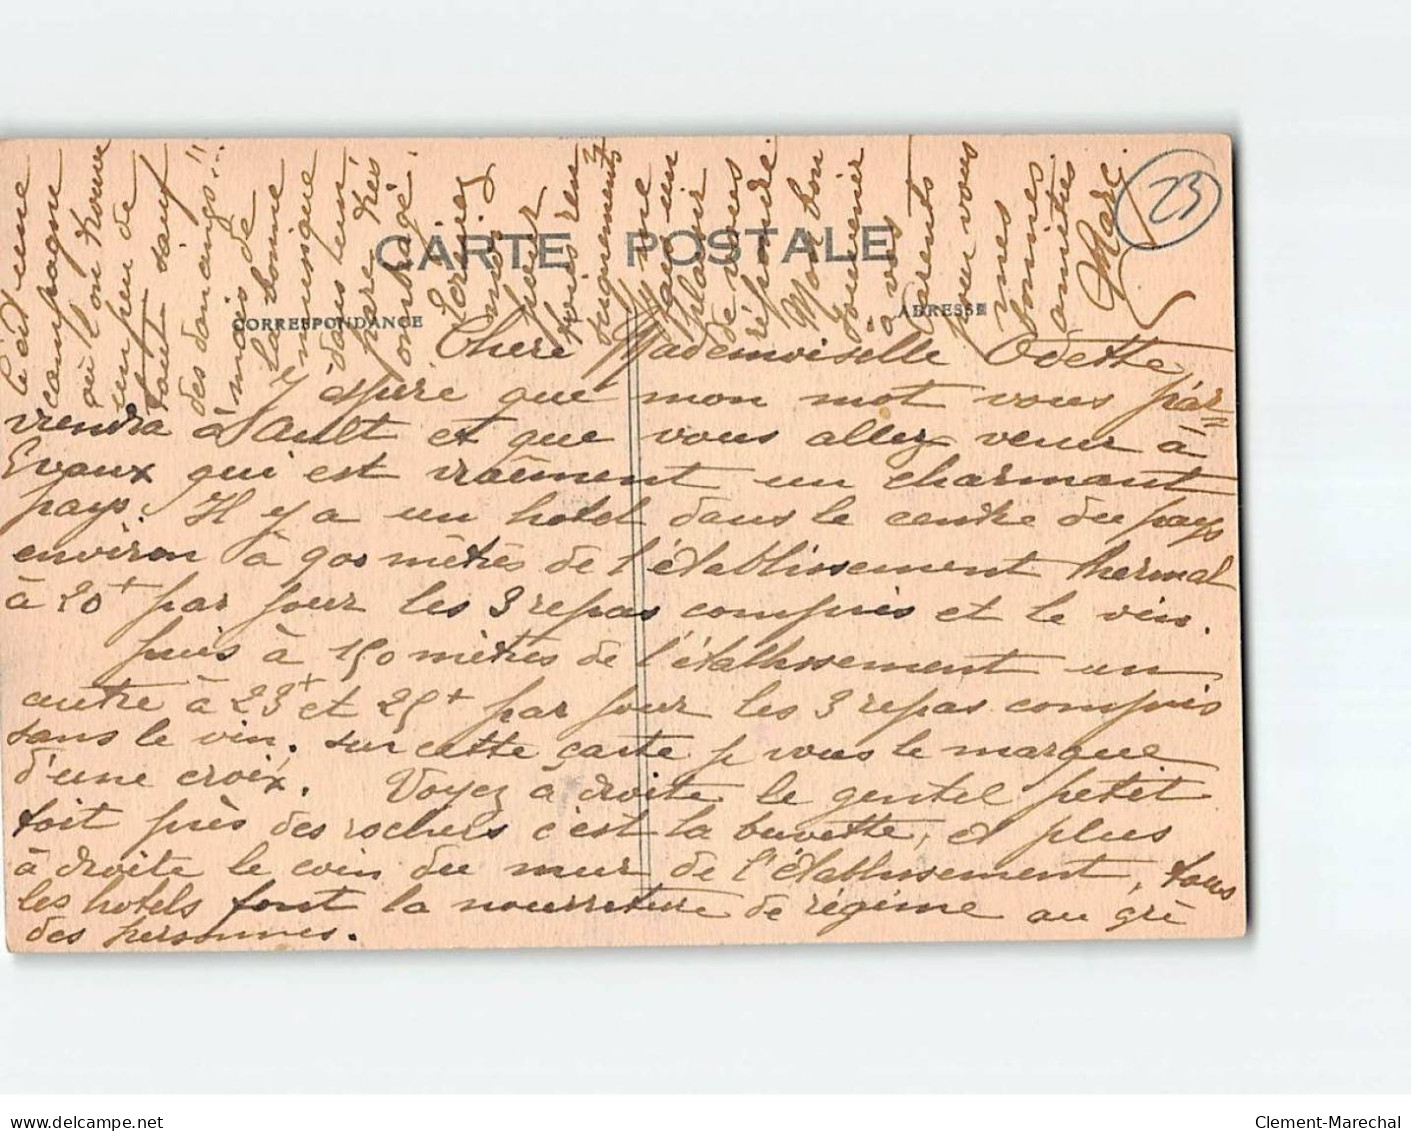 CARTE POSTALE
CORRESPONDANCE
ADRESSE
23
Chère Mademoiselle Odette
J'espère que mon mot vous par=
viendra à Ault et que vous allez venir à
Evaux qui est vraiment un charmant
pays. Il y a un hotel dans le centre du pays
environ à 900 mètres de l'établissement thermal
à 20+ par jour les 3 repas compris et le vin.
puis à 150 mètres de l'établissement un
autre à 23+ et 25+ par jour les 3 repas compris
sans le vin. sur cette carte je vous le marque
d'une croix. Voyez à droite le gentil petit
toit près des rochers c'est la buvette, et plus
à droite le coin du mur de l'établissement, tous
les hotels font la nourriture de régime au gré
des personnes.
C'est une
campagne
où l'on trouve
un peu de
tout sauf
des dancings!!...
mais de
la bonne
musique
dans leur
parc très
ombragé.
Ecrivez
moi
pour
tous ren
seignements
j'aurai
plaisir
de vous
répondre.
Mon bon
souvenir
à vos
parents
pour vous
mes
bonnes
amitiés
Marc
Clement-Marechal